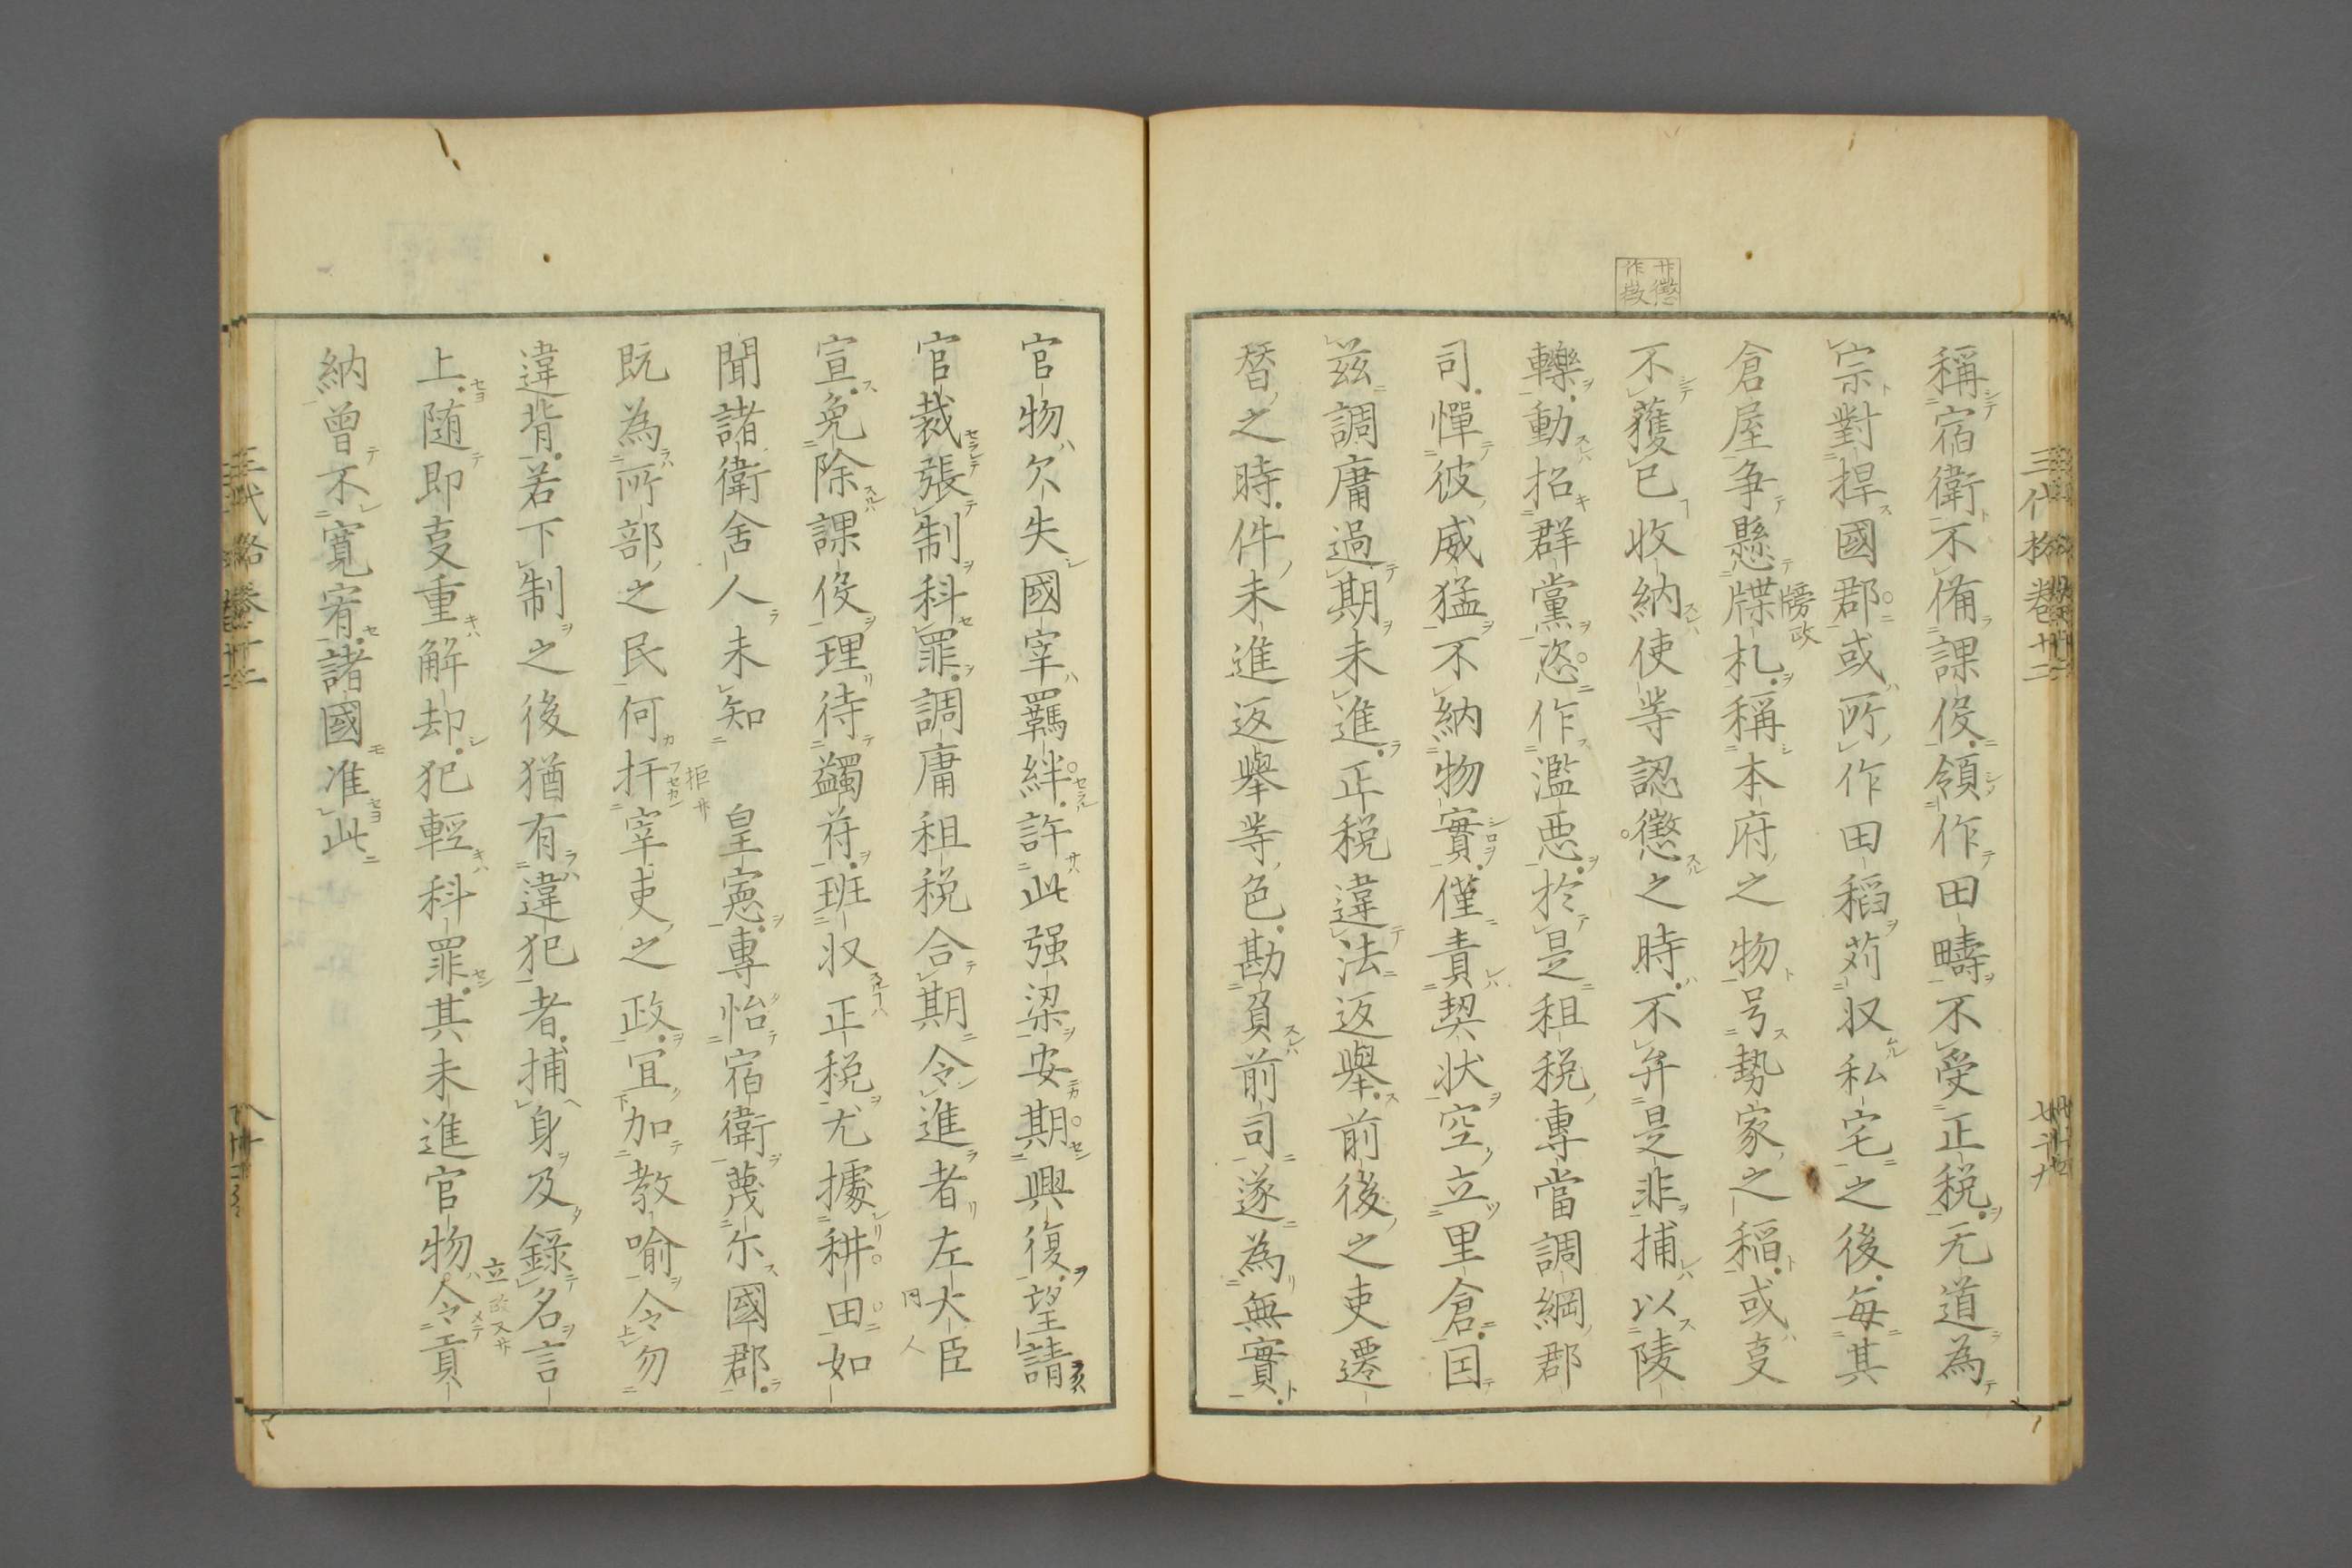 稱宿衛不備課役領作田疇不受正税无道為
宗對捍國郡或所作田稻苅収私宅之後毎其
倉屋争懸牒札稱本府之物号勢家之稲或叓
不獲已収納使等認懲之時不弁是非捕以陵
轢動招群黨恣作濫悪於是租税専當調綱郡
司憚彼威猛不納物實僅責契状空立里倉因
兹調庸過期未進正税違法返擧前後之吏遷
替之時件未進返擧等色勘負前司遂為無實
官物欠失國宰羈絆許此强梁安期興復望請
官裁張制科罪調庸租税合期令進者左大臣
宣免除課役理待蠲苻班収正税尤據耕田如
聞諸衛舎人未知 皇憲專怡宿衛蔑尓國郡
既為所部之民何扞宰吏之政宜加教喩令勿
違背若下制之後猶有違犯者捕身及録名言
上随即叓重解却犯輕科罪其未進官物令貢
納曾不寛宥諸國准此